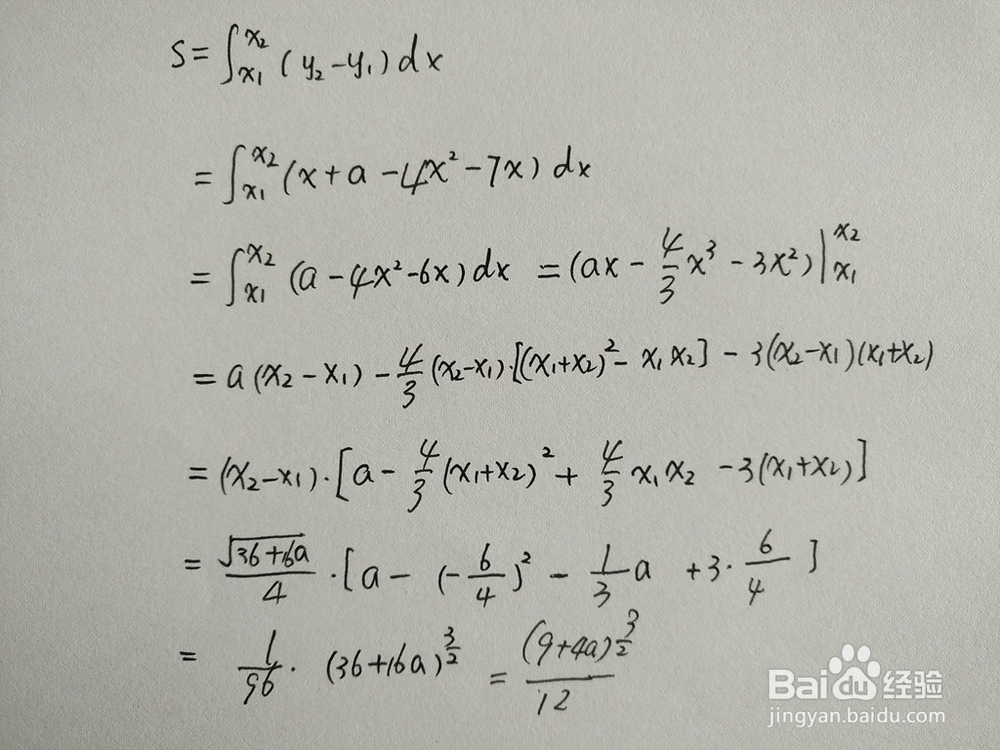 S=∫_{x₁}^{x₂} (y₂-y₁)dx
=∫_{x₁}^{x₂} (x+a-4x²-7x) dx
=∫_{x₁}^{x₂} (a-4x²-6x)dx =(ax-\frac{4}{3}x³-3x²)|_{x₁}^{x₂}
=a(x₂-x₁)-\frac{4}{3}(x₂-x₁)·[(x₁+x₂)²-x₁x₂]-3(x₂-x₁)(x₁+x₂)
=(x₂-x₁)·[a-\frac{4}{3}(x₁+x₂)²+\frac{4}{3}x₁x₂-3(x₁+x₂)]
=\frac{\sqrt{36+16a}}{4}·[a-(-\frac{6}{4})²-\frac{1}{3}a+3·\frac{6}{4}]
=\frac{1}{96}·(36+16a)^{\frac{3}{2}}=\frac{(9+4a)^{\frac{3}{2}}}{12}
Baidu经验
jingyan.baidu.com